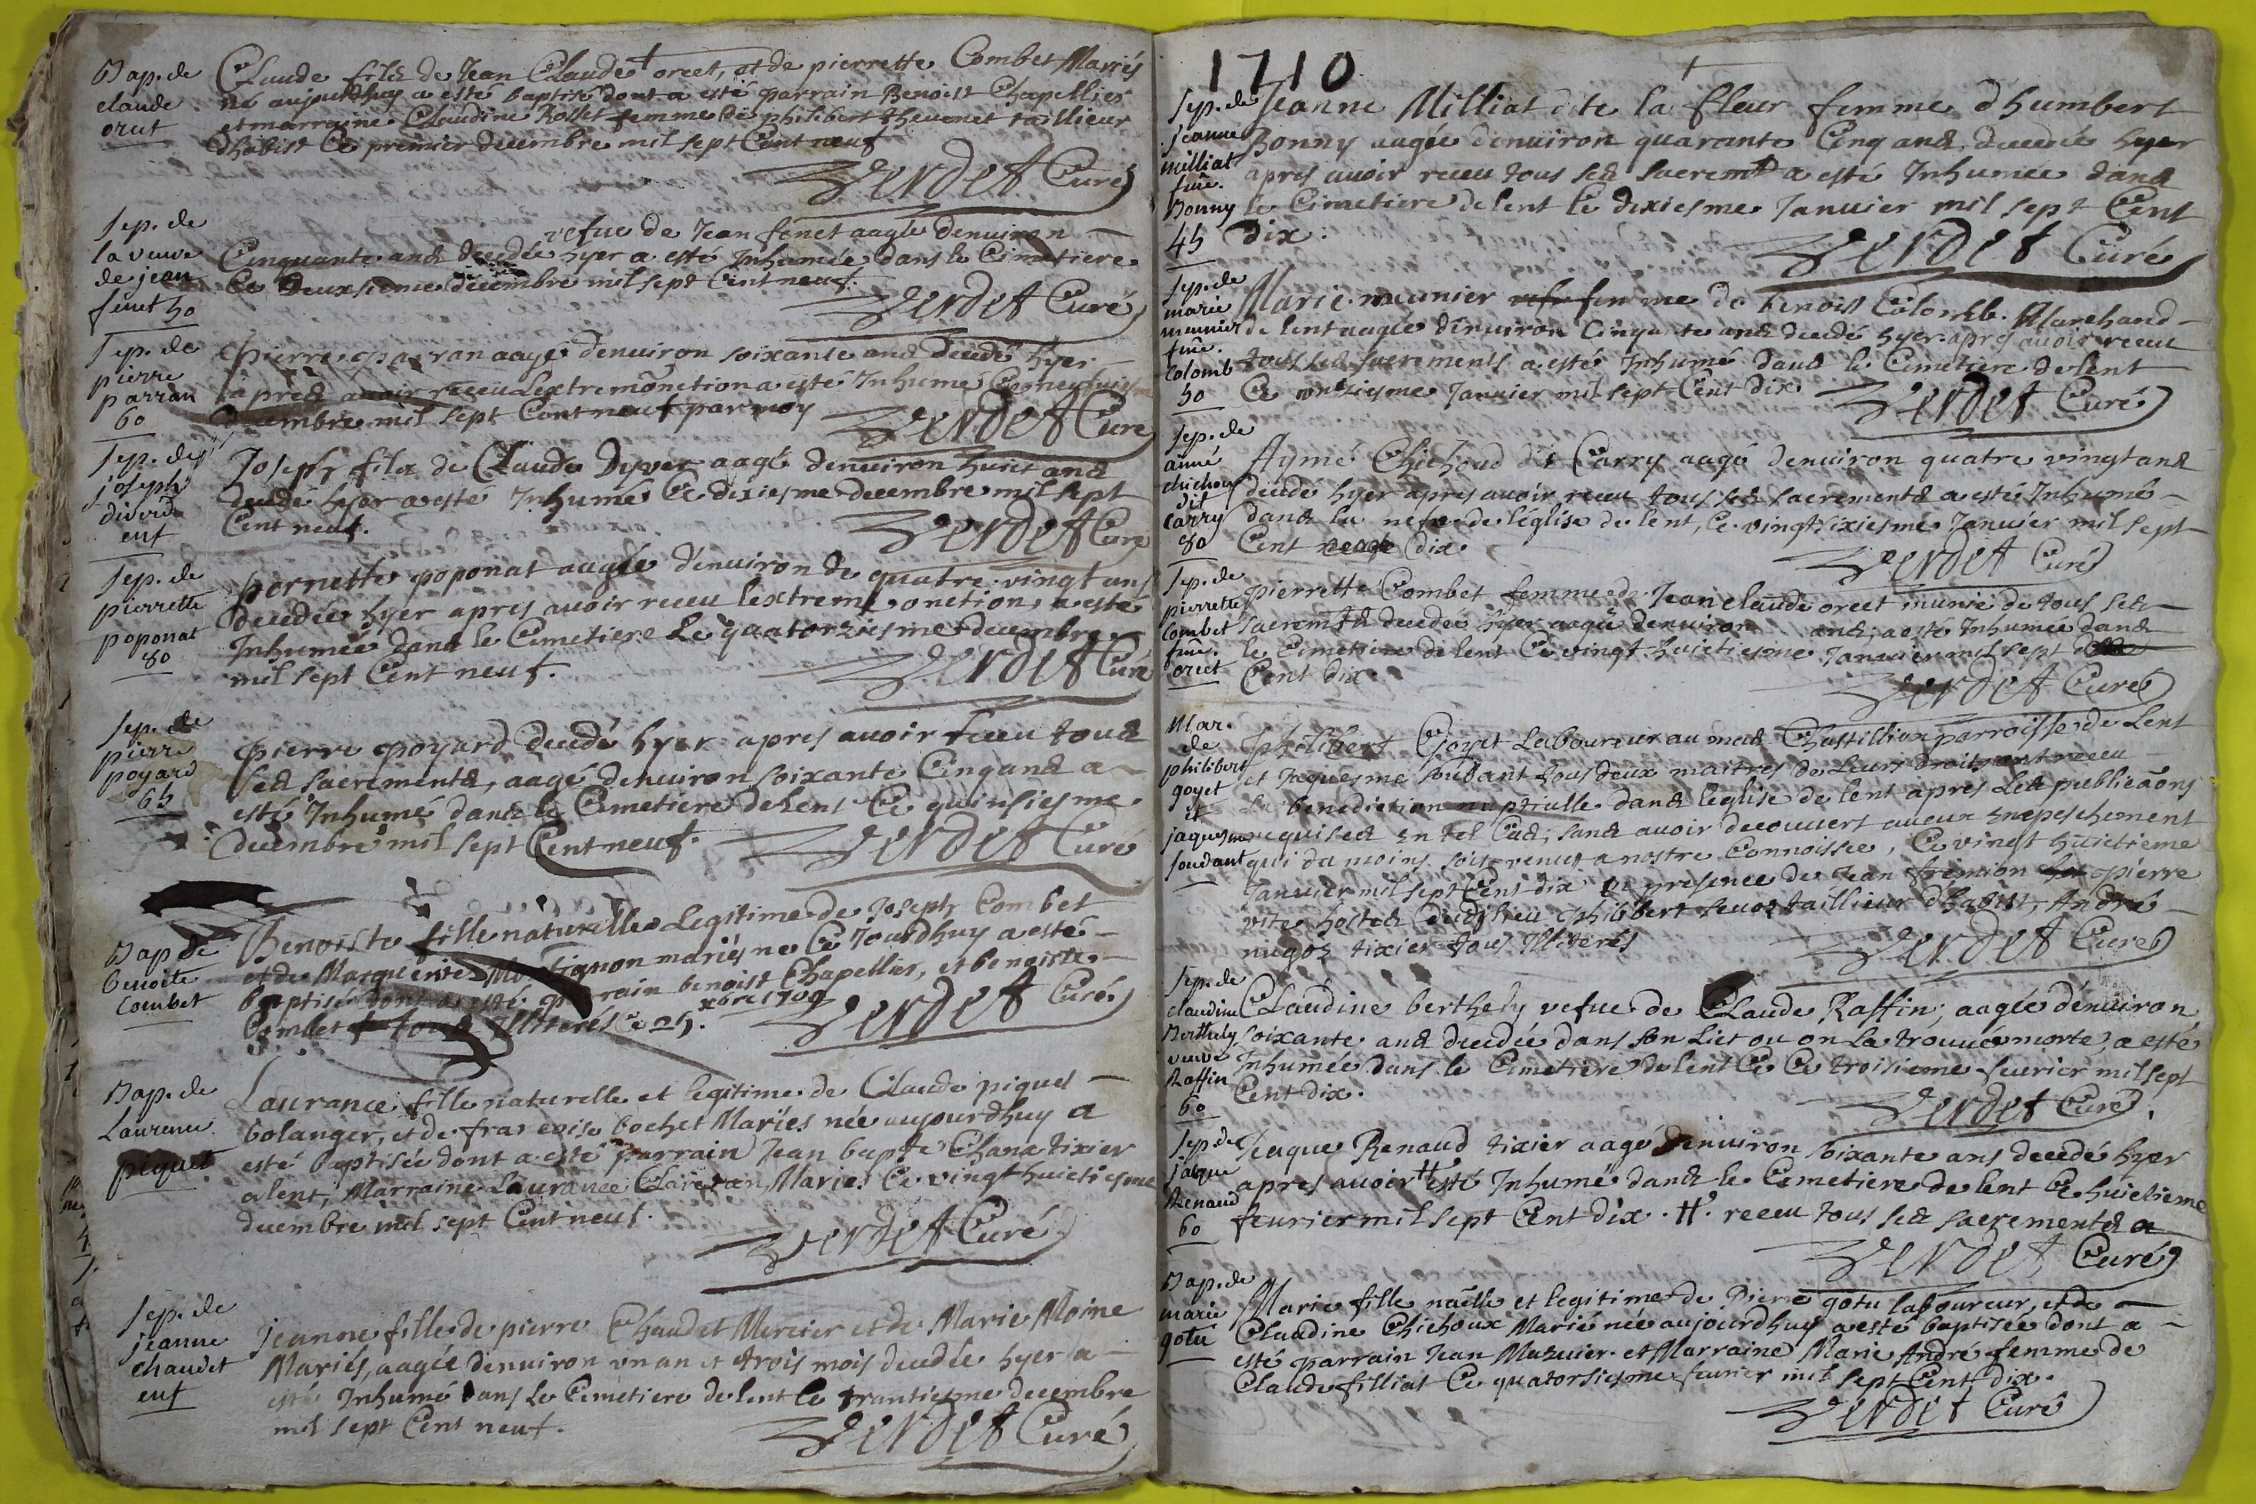 Bap. de
claude
orcet
Claude fils de Jean Claude orcet, et de pierrette Combet Mariés
né aujourdhuy a esté baptisé dont a esté parrain Benoist Chapellier
et marraine Claudine Rollet femme de philibert thevenet taillieur
dhabist Ce premier decembre mil sept Cent neuf
Verdet Curé
Sep. de
la veuve
de jean
fenet 50
vefue de Jean fenet aagée denuiron
Cinquante ans decedée hyer a esté Inhumée dans le Cimetiere
Ce Deuxsieme decembre mil sept Cent neuf.
Verdet Curé
Sep. de
pierre
parran
60
Pierre parran aagé denuiron soixante ans decedé hyer
apres avoir receu lextremonction a esté Inhumé Ce
decembre mil sept Cent neuf par moy
Verdet Curé
Sep. de
joseph
enf
Joseph fils de Claude Dyver aagé denuiron huict ans
decedé hyer a esté Inhumé Ce dixiesme decembre mil sept
Cent neuf.
Verdet Curé
Sep. de
pierrette
poponat
80
pernette poponat aagée denuiron de quatre vingt ans
decedée hyer apres auoir receu lextreme onction, a esté
Inhumée dans le Cimetiere Le quatorziesme decembre
mil sept Cent neuf.
Verdet Curé
Sep. de
pierre
poyard
65
pierre poyard decedé hyer apres auoir receu tous
ses sacrements, aagé denuiron soixante Cinq ans a
esté Inhumé dans le Cimetiere de Lent Ce quinsiesme
decembre mil sept Cent neuf.
Verdet Curé
Bap de
benoite
Combet
Benoiste fille naturelle Legitime de Joseph Combet
et de Marguerite Montagnon mariés ne Ce Jourdhuy a esté
baptisé dont a esté parrain benoist Chapellier, et benoiste
Combet tous Illiterés Ce 25. xbre 1709
Verdet Curé
Bap. de
Laurence
piquet
Laurance fille naturelle et legitime de Claude piquet
bolanger, et de francoise bochet Mariés née aujourdhuy a
esté baptisée dont a esté parrain Jean bapte Chana tixier
a lent, Marraine Laurance Mariés Ce vingt huictiesme
decembre mil sept Cent neuf.
Verdet Curé
Sep. de
jeanne
chaudet
enf
Jeanne fille de pierre Chaudet Mercier et de Marie Moine
Mariés, aagée denuiron vn an et trois mois decedée hyer a
esté Inhumé dans Le Cimetiere de lent le trantiesme decembre
mil sept Cent neuf.
Verdet Curé
1710
Sep. de
jeanne
milliat
fme.
Bonny
45
Jeanne Milliat dite la fleur femme dhumbert
Bonny aagée denuiron quarante Cinq ans, decedée hyer
apres auoir receu tous ses sacremts a esté Inhumée dans
le Cimetiere de lent le dixiesme Januier mil sept Cent
dix.
Verdet Curé
Sep. de
marie
meunier
fme.
Colomb
50
Marie meunier femme de benoist Colomb Marchand
de lent aagée denuiron Cinquante ans decedé hyer apres auoir receu
tous ses sacrements a esté Inhumé dans le Cimetiere de lent
Ce onziesme Januier mil sept Cent dix
Verdet Curé
Sep. de
aimé
chichou
dit
Carry
80
Aymé Chichoud dit Carry aagé denuiron quatre vingt ans
decedé hyer apres auoir receu tous ses sacrements a esté Inhumé
dans la nefve de léglise de lent, Ce vingtsixiesme Januier mil sept
Cent dix.
Verdet Curé
Sep. de
pierrette
Combet
fme.
orcet
pierrette Combet femme de Jean claude orcet munie de tous ses
sacremts decedée hyer aagée denuiron ans, a esté Inhumée dans
le Cimetiere de lent Ce vingt huictiesme Januier mil sept
Cent dix.
Verdet Curé
Mar.
de
philibert
goyet
et
jaquesme
soudant
Philibert Goyet Laboureur au mas Chastillion parroisse de Lent
et Jaquesme soudant tous deux maitres de Leurs droits ont receu
La benediction nuptialle dans leglise de lent apres Les publicaons
requises en tel Cas, sans auoir decouuert aucun Empeschement
qui du moins soit venus a nostre Connoissce, Ce vingt huictieme
Januier mil sept Cent dix en presence de Jean fremion pierre
vite hostes dudit lieu Philibert tailleur dhabist, André
tixier tous Illiterés
Verdet Curé
Sep. de
claudine
Berthely
veuve
Raffin
60
Claudine berthely vefue de Claude Raffin, aagée denuiron
soixante ans decedée dans son Lict ou on La trouvé morte, a esté
Inhumée dans le Cimetiere de lent Ce Ce troisieme feurier mil sept
Cent dix.
Verdet Curé
Sep. de
jaque
Renaud
60
Jaque Renaud tixier aagé denuiron soixante ans decedé hyer
apres auoir # esté Inhumé dans le Cimetiere de lent Ce huictieme
feurier mil sept Cent dix. #. receu tous ses sacrements a
Verdet Curé
Bap. de
marie
gotu
Marie fille naelle et legitime de Pierre gotu laboureur, et de
Claudine Chichoux Marié née aujourdhuy a esté baptisée dont a
esté parrain Jean Mazuier et Marraine Marie André femme de
Claude filliat Ce quatorsiesme feurier mil sept Cent dix.
Verdet Curé